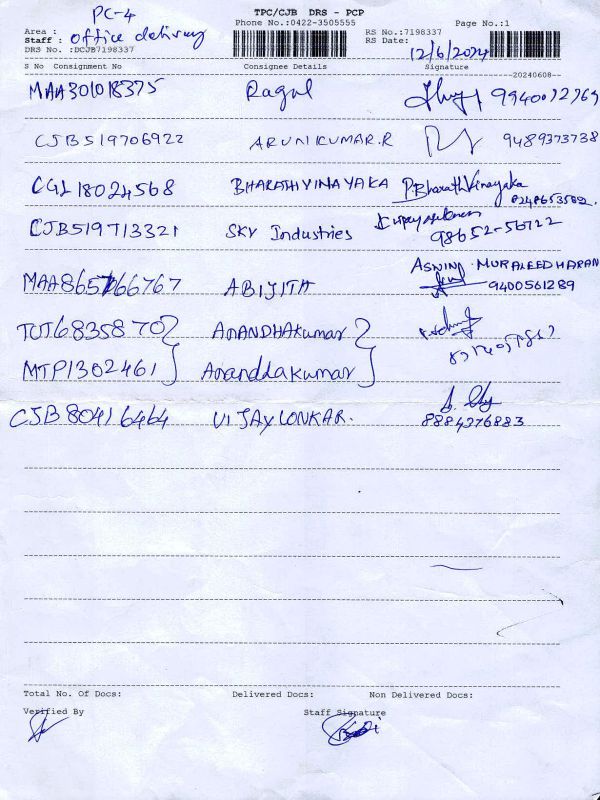 TPC/CJB DRS - PCP
PC-4
Phone No.:0422-3505555 Page No.:1
Area :
Staff : office delivery
DRS No. :DCJB7198337
RS No.:7198337
RS Date: 12/6/2024
S No Consignment No Consignee Details Signature
--20240608--
MAA301018375 Ragul
CJB519706922 ARUNKUMAR.R 9489373738
CGL18024568 BHARATHIVINAYAKA P.BharathVinayaka
CJB519713321 SKY Industries 98652-56722
MAA865766767 ABIJITH ASWIN MURALEEDHARAN
9400561289
TUT6835870 ANANDHAKumar
MTP1302461 Ananddakumar
CJB80416464 VIJAYLONKAR. 8884276883
Total No. Of Docs: Delivered Docs: Non Delivered Docs:
Verified By Staff Signature